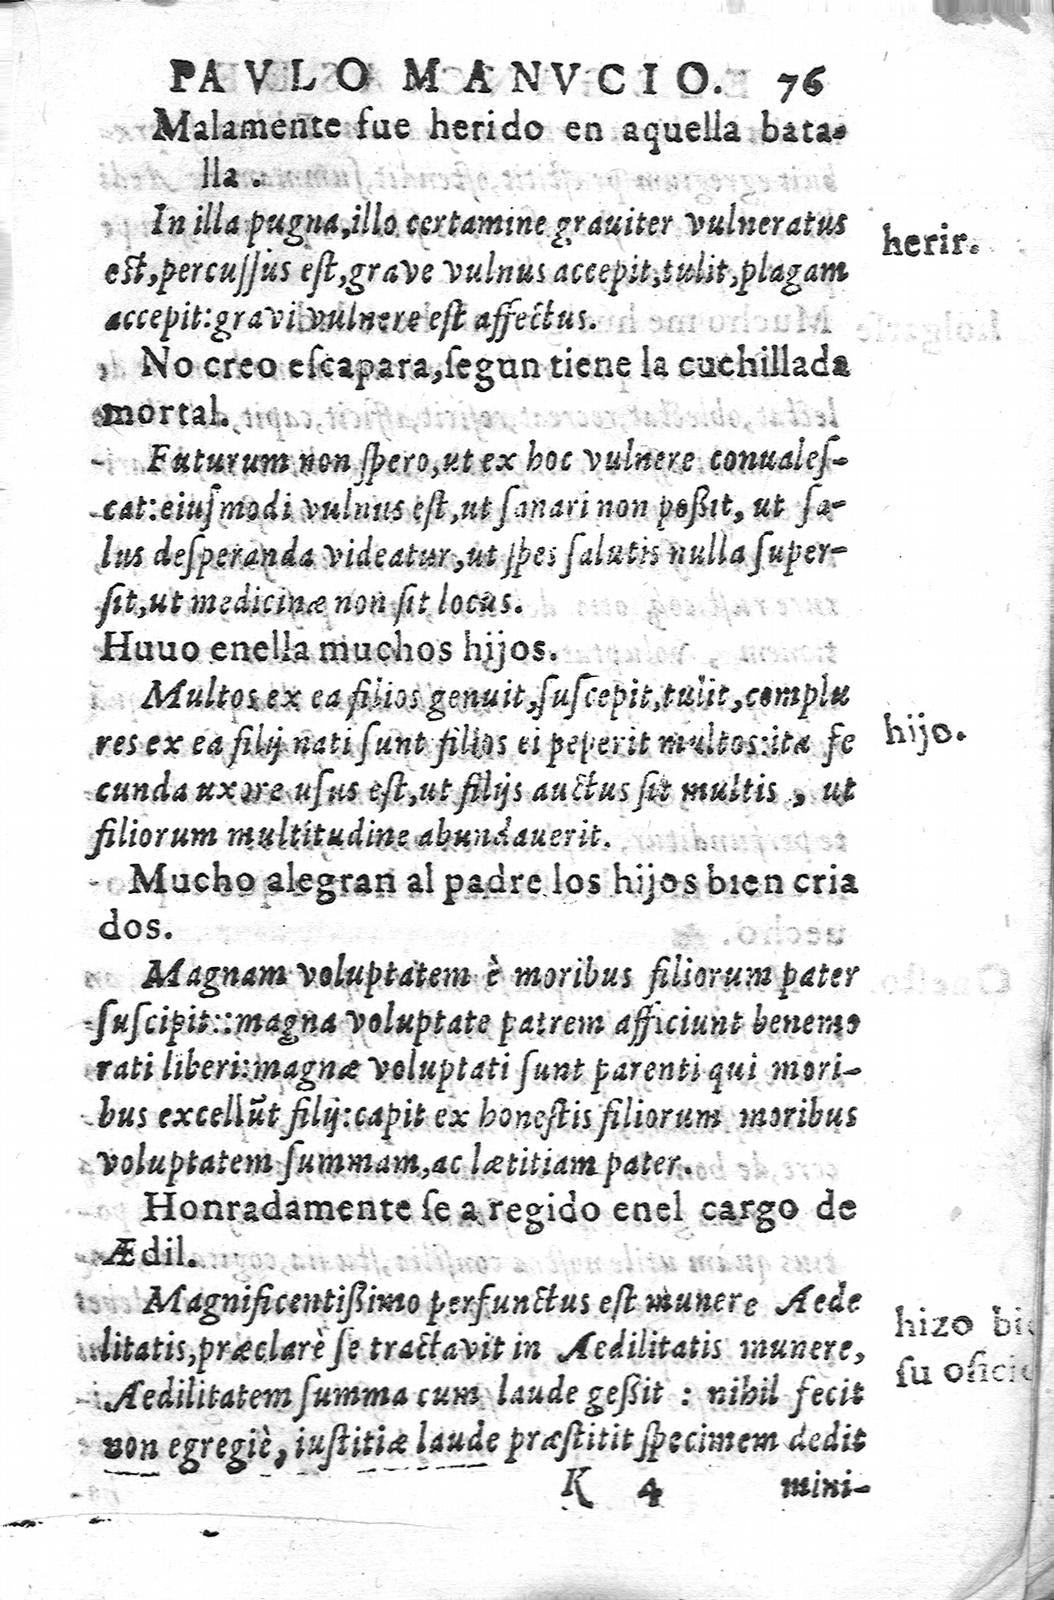 PAVLO MANVCIO. 76
Malamente fue herido en aquella bata-
lla.
In illa pugna,illo certamine grauiter vulneratus
est,percuſſus eſt,grave vulnus accepit,tulit,plagam
accepit:gravi vulnere eſt affectus.
herir.
No creo eſcapara,ſegun tiene la cuchillada
mortal.
Futurum non ſpero,ut ex hoc vulnere conualeſ-
cat:eiuſmodi vulnus eſt,ut ſanari non poßit, ut ſa-
lus deſperanda videatur,ut ſpes ſalutis nulla ſuper-
ſit,ut medicinæ non ſit locus.
Huuo enella muchos hijos.
Multos ex ea filios genuit,ſuſcepit,tulit,complu
res ex ea filij nati ſunt filios ei peperit multos:ita fe
cunda uxore uſus eſt,ut filijs auctus ſit multis , ut
filiorum multitudine abundauerit.
hijo.
Mucho alegran al padre los hijos bien cria
dos.
Magnam voluptatem è moribus filiorum pater
ſuſcipit::magna voluptate patrem afficiunt benemo
rati liberi:magnæ voluptati ſunt parenti qui mori-
bus excellũt filij:capit ex honeſtis filiorum moribus
voluptatem ſummam,ac lætitiam pater.
Honradamente ſe a regido enel cargo de
Ædil.
Magnificentißimo perfunctus eſt munere Aede
litatis,præclarè ſe tractavit in Aedilitatis munere,
Aedilitatem ſumma cum laude geßit : nihil fecit
non egregiè, iuſtitiæ laude præſtitit ſpecimem dedit
hizo bi
ſu ofici
K 4 mini-